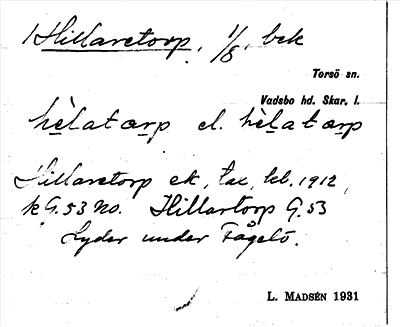 Hillaretorp, 1/8, bek
Torsö sn.
Vadsbo hd. Skar. l.
hèlatærp el. hèlatærp
Hillaretorp ek, tax, kl. 1912,
k G.53 No. Hillartorp G.53
Lyder under Fågelö.
L. MADSÉN 1931